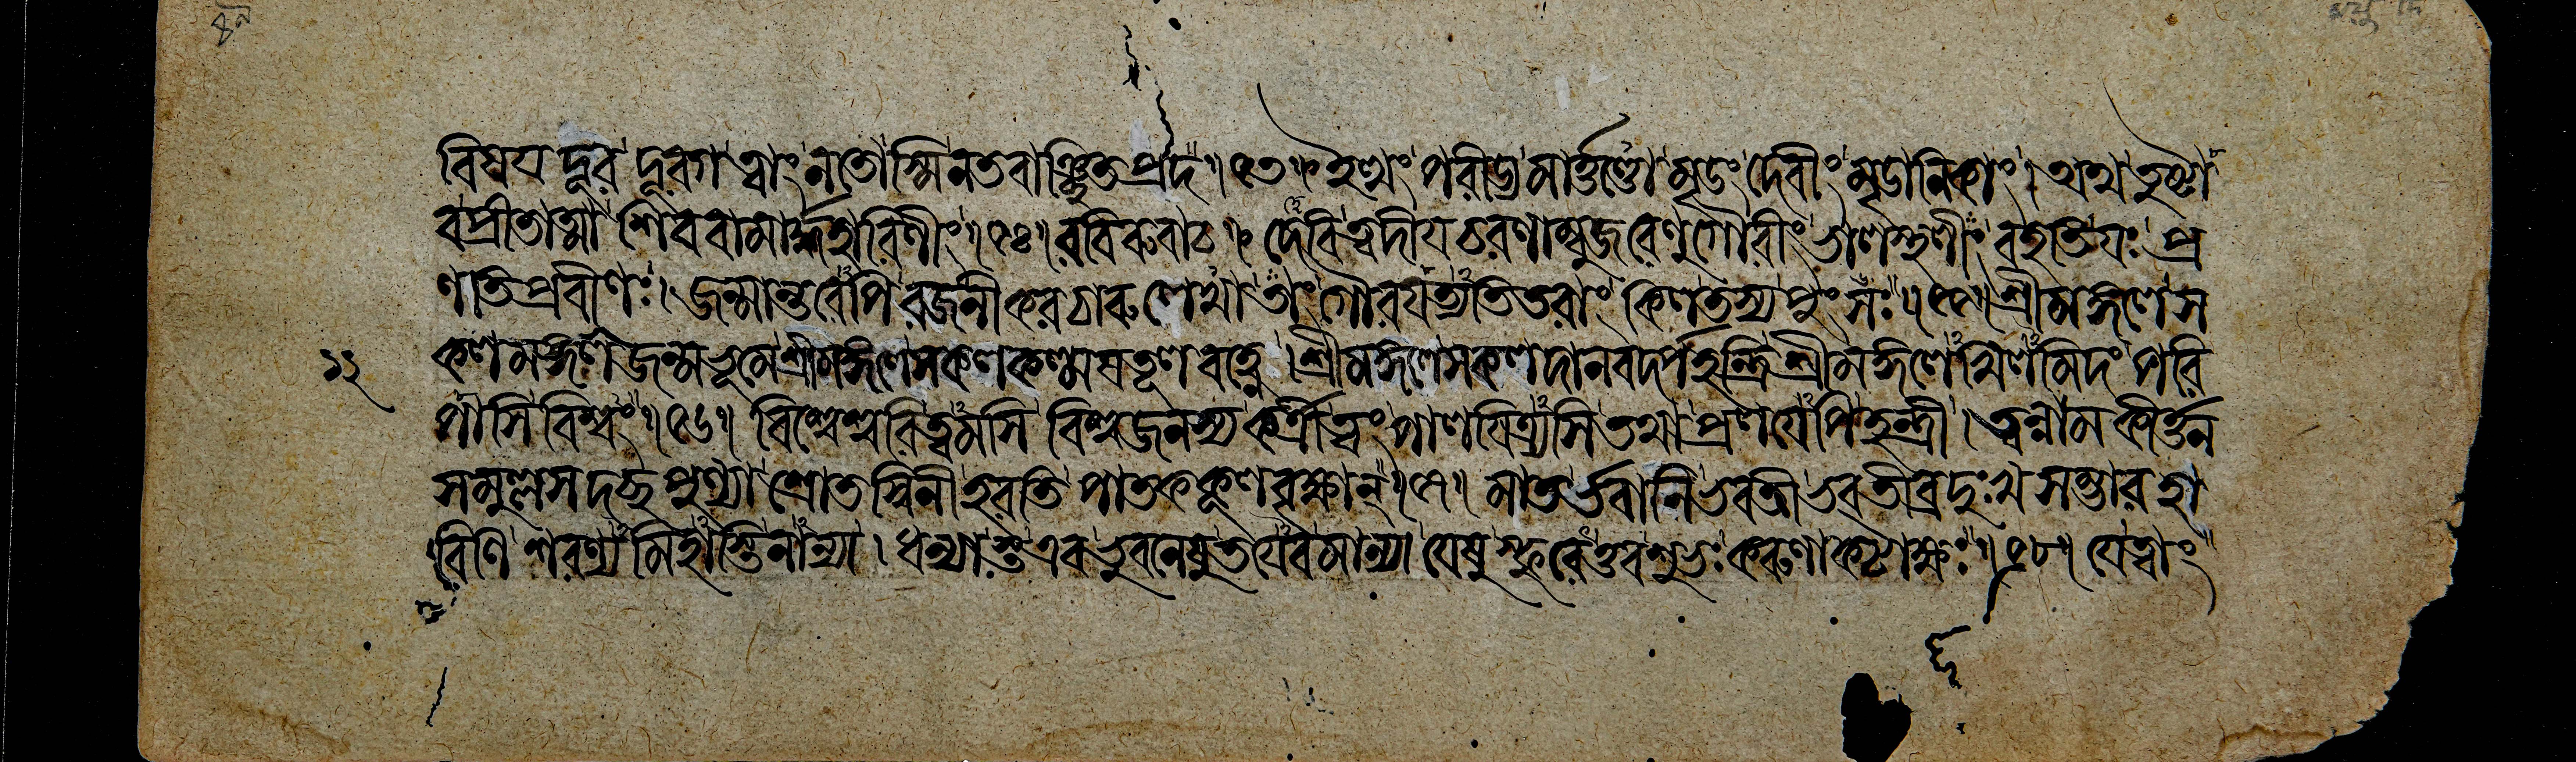 বিষয দূর দূরগ ত্বাং নতোস্মি নতবাঞ্ছিতপ্রদ ॥৫৩॥ ইত্থং পরীড্য মার্ত্তণ্ডো মৃডং দেবীং মৃডানিকাং । অথ তুষ্টা
ব প্রীতাত্মা শিববামার্দ্ধহারিণীং ॥৫৪॥ রবিরুবাচ ॥ দেবি ত্বদীযচরণাম্বুজরেণুগৌরীং ভালস্থলীং বহতি যঃ প্র
ণতিপ্রবীণঃ । জন্মান্তরেপি রজনীকরচারুলেখা তাং গৌরযত্যতিতরাং কিল তস্য পুংসঃ ॥৫৫॥ শ্রীমঙ্গলে স
১২ কলমঙ্গলজন্মভূমে শ্রীমঙ্গলে সকলকল্মষতূলবহ্নে । শ্রীমঙ্গলে সকলদানবদর্পহন্ত্রি শ্রীমঙ্গলেখিলমিদং পরি
পাসি বিশ্বং ॥৫৬॥ বিশ্বেশ্বরি ত্বমসি বিশ্বজনস্য কর্ত্রী ত্বং পালযিত্র্যসি তথা প্রলযেপি হন্ত্রী । ত্বন্নামকীর্ত্তন
সমুল্লসদচ্ছপুণ্যা শ্রোতস্বিনী হরতি পাতককূলবৃক্ষান্ ॥৫৭॥ মাতর্ভবানি ভবতী ভবতীব্রদুঃখসম্ভারহা
রিণি শরণ্যমিহাস্তি নান্যা । ধন্যাস্ত এব ভুবনেষু ত এব মান্যা যেষু স্ফুরেত্তব শুভঃ করুণাকটাক্ষঃ ॥৫৮॥ যে ত্বাং